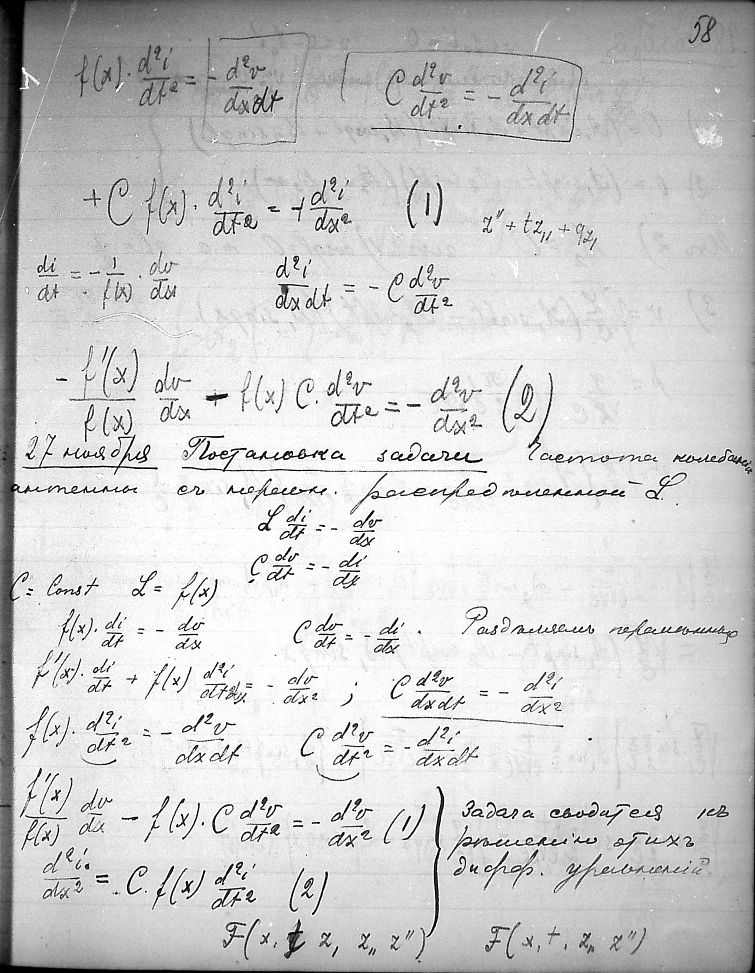 58
f(x)·d²i/dt² = - d²v/dxdt    C d²v/dt² = - d²i/dxdt
+ C f(x)· d²i/dt² = + d²i/dx²  (1)  z″ + tz,, + qz,
di/dt = - 1/f(x) · dv/dx    d²i/dxdt = - C d²v/dt²
- f′(x)/f(x) dv/dx - f(x) C· d²v/dt² = - d²v/dx² (2)
27 ноября Постановка задачи Частота колебанія
антенны съ неравн. распредѣленной L.
L di/dt = - dv/dx
C dv/dt = - di/dx
C = Const  L = f(x)
f(x)· di/dt = - dv/dx    C dv/dt = - di/dx · Раздѣляемъ переменныя
f′(x)· di/dt + f(x) d²i/dtdx = - dv/dx² ; C d²v/dxdt = - d²i/dx²
f(x)· d²i/dt² = - d²v/dxdt    C d²v/dt² = - d²i/dxdt
f′(x)/f(x) dv/dx - f(x)·C d²v/dt² = - d²v/dx² (1)
d²i/dx² = C· f(x) d²i/dt²  (2)
Задача сводится къ
рѣшенію этихъ
дифф. уравненій.
F(x, t, z, z,, z″)    F(x, t, z,, z″)